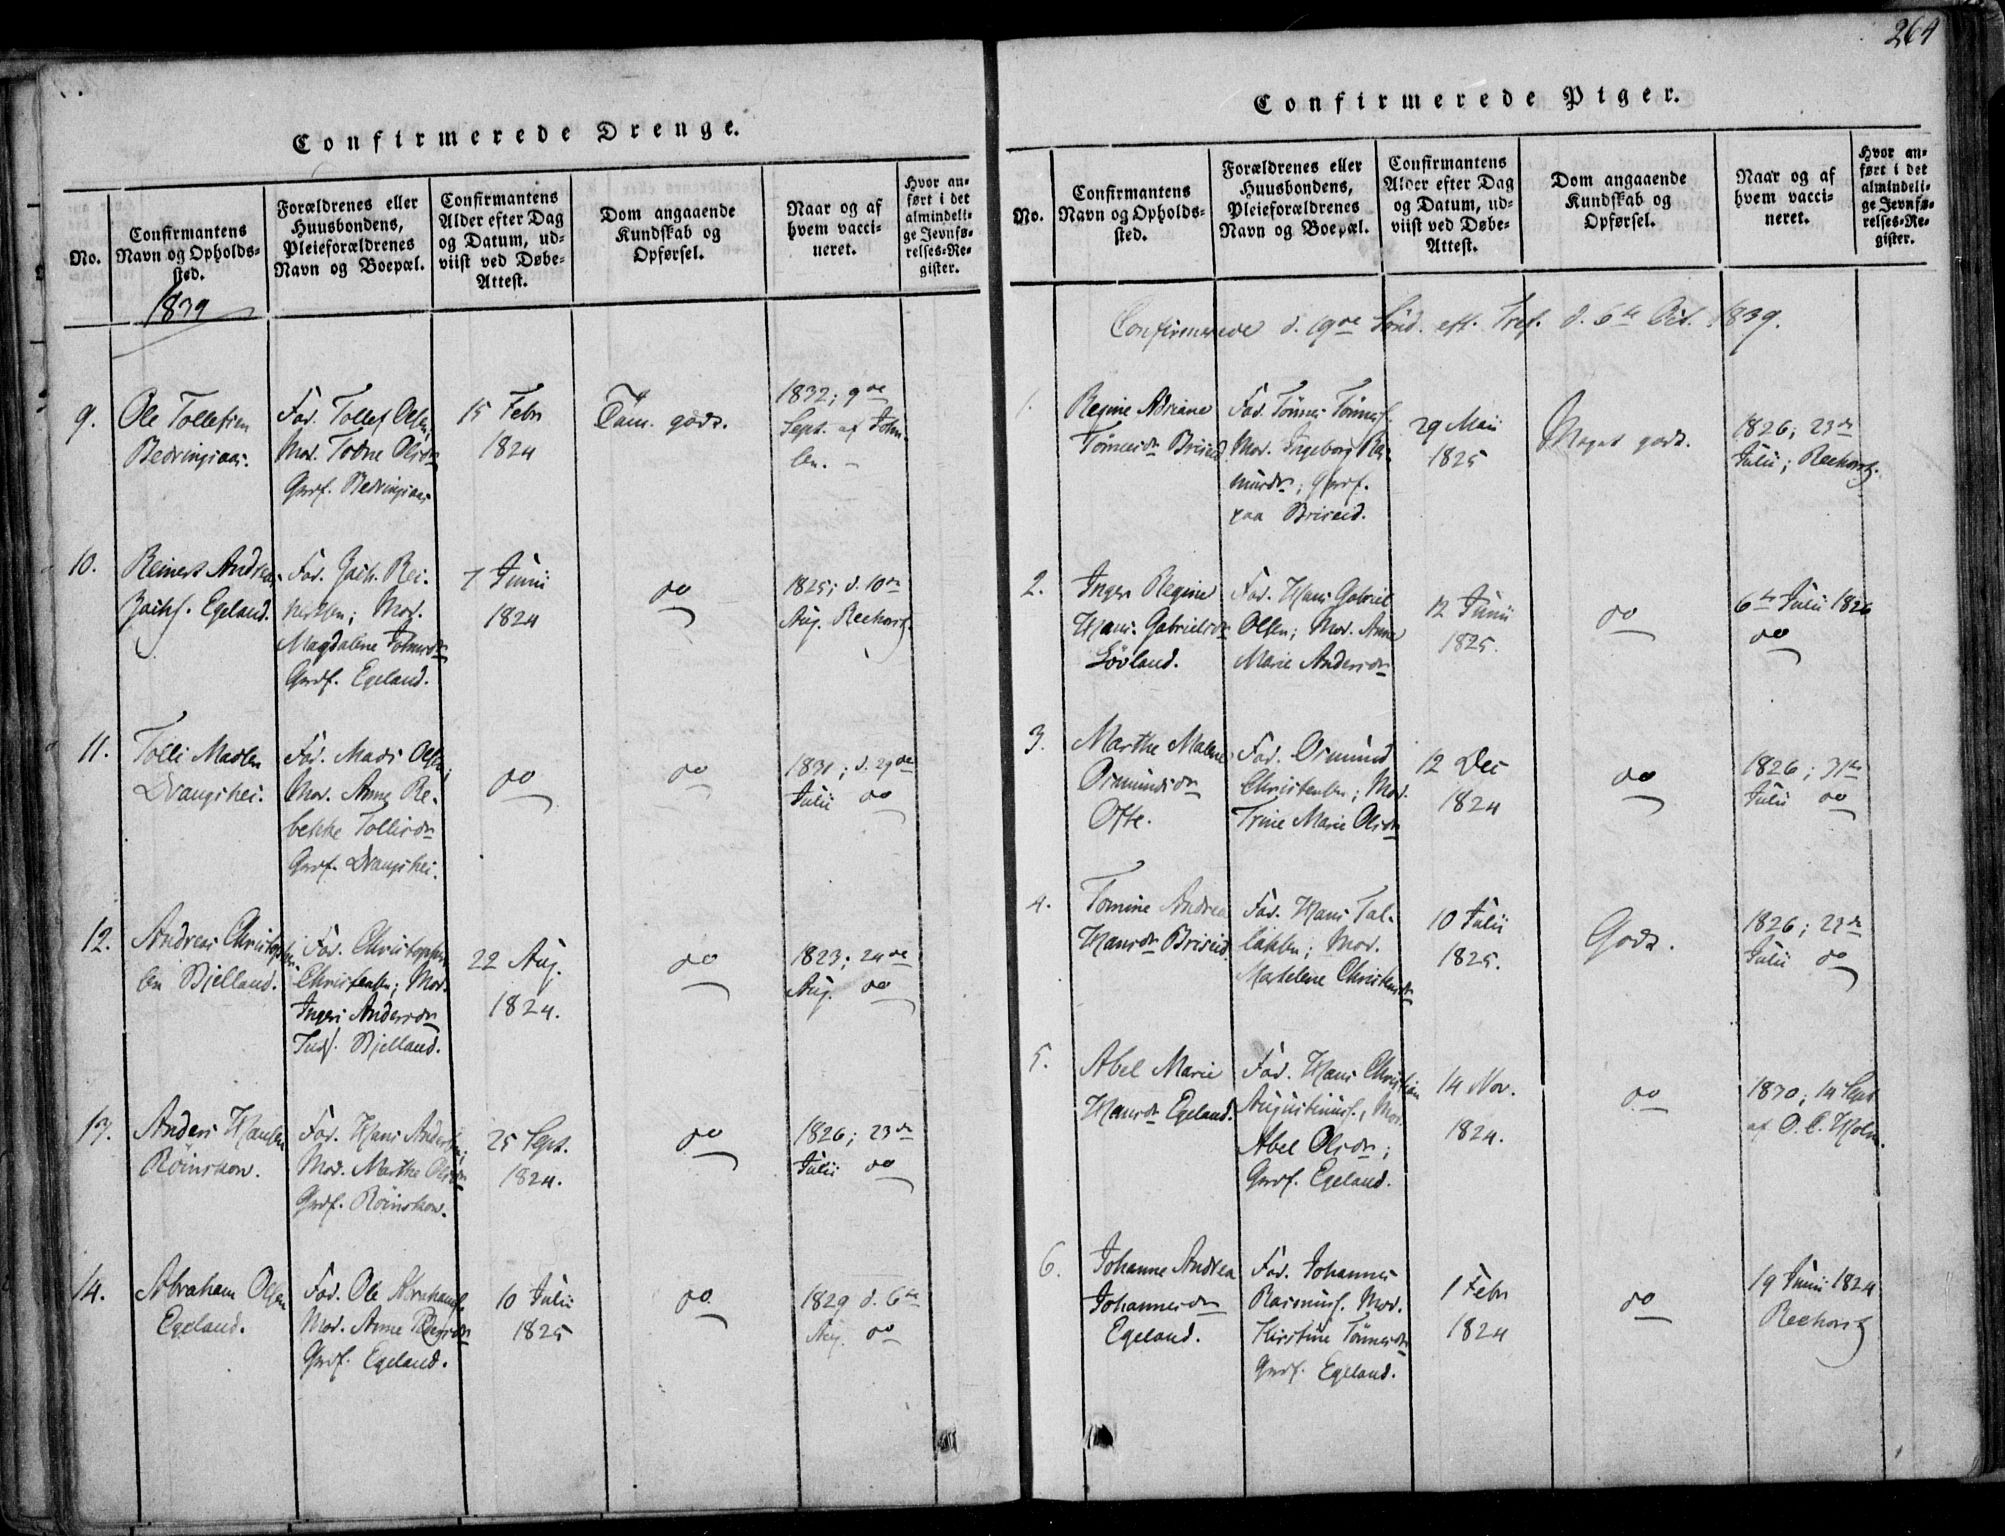 264
Confirmerede Drenge.
No.
Confirmantens
Navn og Opholds-
sted.
Forældrenes eller
Huusbondens,
Pleieforældrenes
Navn og Boepæl.
Confirmantens
Alder efter Dag
og Datum, ud-
viist ved Døbe-
Attest.
Dom angaaende
Kundskab og
Opførsel.
Naar og af
hvem vacci-
neret.
Hvor an-
ført i det
almindeli-
ge Jevnfø-
relses-Re-
gister.
1839
9.
Ole Tollefsen
Fad. Tollef Olsen,
Mod. Todne Olsdr
Grdf.
15 Febr
1824
Tem. godt.
1832; 9de
Sept. af John-
sen.
10.
Reinert Andreas
Zachf. Egeland.
Fad. Zach. Rei-
nertsen; Mod.
Magdalene
Grdf. Egeland.
7 Junii
1824
do
1825; d. 10de
Aug. Reehorst
11.
Tolli Madsen
Dvangshei.
Fad. Mads Olsen;
Mod. Anne Re-
bekke Tollisdr
Grdf. Dvangshei.
do
do
1831; d. 29de
Julii do
12.
Andreas Christoph-
sen Bjelland.
Fad. Christopher
Christensen; Mod.
Inger Andersdr
Inds. Bjelland.
22 Aug.
1824.
do
1823; 24de
Aug. do
13.
Anders Hansen
Röinskow.
Fad. Hans Andersen;
Mod. Marthe Olsdr
Grdf. Röinskow.
25 Sept.
1824.
do
1826; 23de
Julii do
14.
Abraham Olsen
Egeland.
Fad. Ole Abrahamsen
Mod. Anne Pedersdr
Grdf. Egeland.
10 Julii
1825
do
1829 d. 6te
Aug. do
Confirmerede Piger.
No.
Confirmantens
Navn og Opholds-
sted.
Forældrenes eller
Huusbondens,
Pleieforældrenes
Navn og Boepæl.
Confirmantens
Alder efter Dag
og Datum, ud-
viist ved Døbe-
Attest.
Dom angaaende
Kundskab og
Opførsel.
Naar og af
hvem vacci-
neret.
Hvor an-
ført i det
almindeli-
ge Jevnfø-
relses-Re-
gister.
Confirmerede d. 19de Sönd. eft. Tref. d. 6te Oct. 1839.
1.
Regine Adriane
Tönnesdr Briseid
Fad. Tönnes Tönnesf.
Mod. Ingeborg
Grdf.
paa Briseid.
29 Maii
1825
Meget godt.
1826; 23de
Julii; Reehorst.
2.
Inger Regine
Hans Gabrielsdr
Lövland.
Fad. Hans Gabriel
Olsen; Mod. Anne
Marie Andersdr
12 Junii
1825.
do
6te Julii 1826
do
3.
Marthe Malene
Osmundsdr
Ofte.
Fad. Osmund
Christensen; Mod.
Trine Marie Olsdr
12 Dec
1824
do
1826; 31te
Julii do
4.
Tomine Andrea
Hansdr Briseid
Fad. Hans Tal-
laksen; Mod.
Madelene Christensdr
10 Julii
1825.
Godt.
1826; 23de
Julii do
5.
Abel Marie
Hansdr Egeland.
Fad. Hans Christian
Augustinusf., Mod.
Abel Olsdr;
Grdf. Egeland.
14 Nov.
1824.
do
1830; 14 Sept
af O. C. Holm.
6.
Johanne Andrea
Johannesdr
Egeland.
Fad. Johannes
Rasmusf. Mod.
Kirstine Tönnesdr
Grdf. Egeland.
1 Febr
1824
do
19 Junii 1824
Reehorst